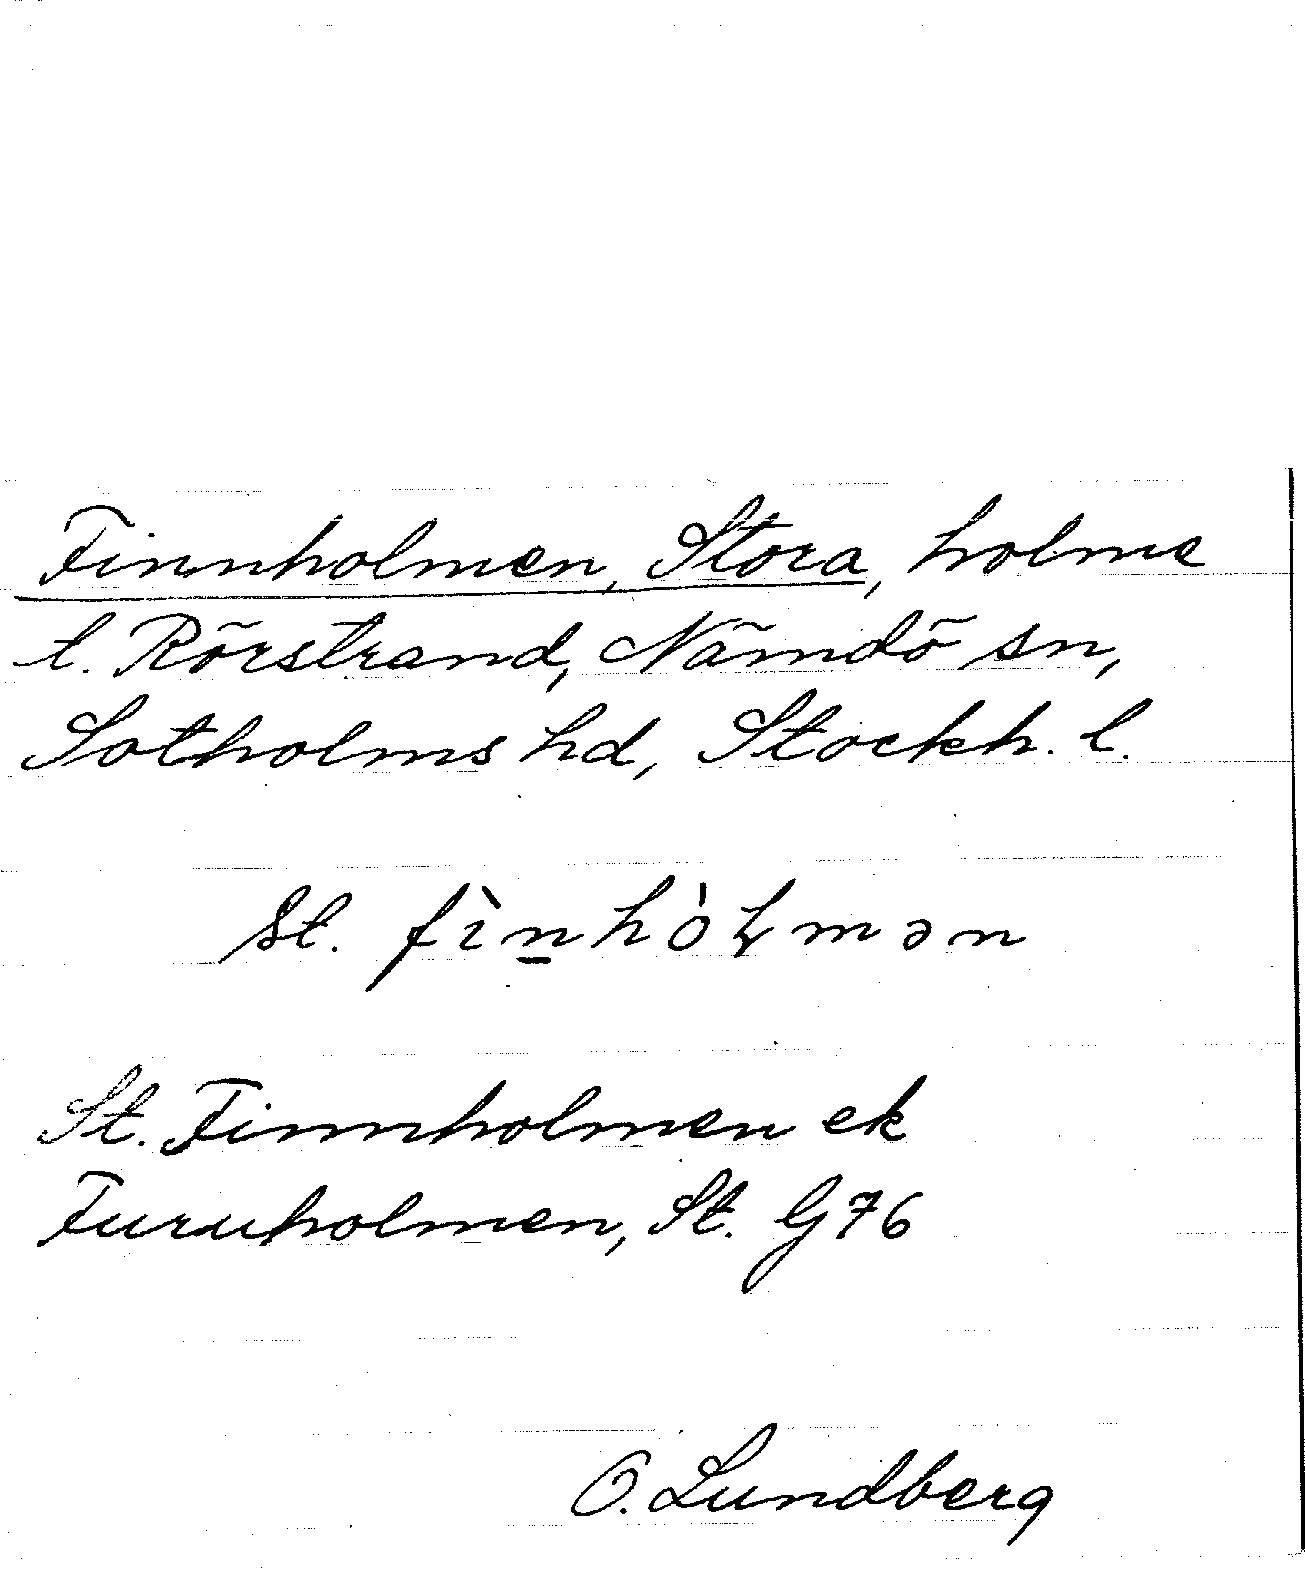 Finnholmen, Stora, holme
t. Rörstrand, Nämdö sn,
Sotholms hd, Stockh. l.
St. fìn̲hòⱡmən
St. Finnholmen ek
Furuholmen, St. G 76
O. Lundberg